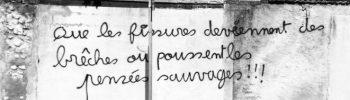 Que les fissures deviennent des
brêches où poussent les
pensées sauvages!!!